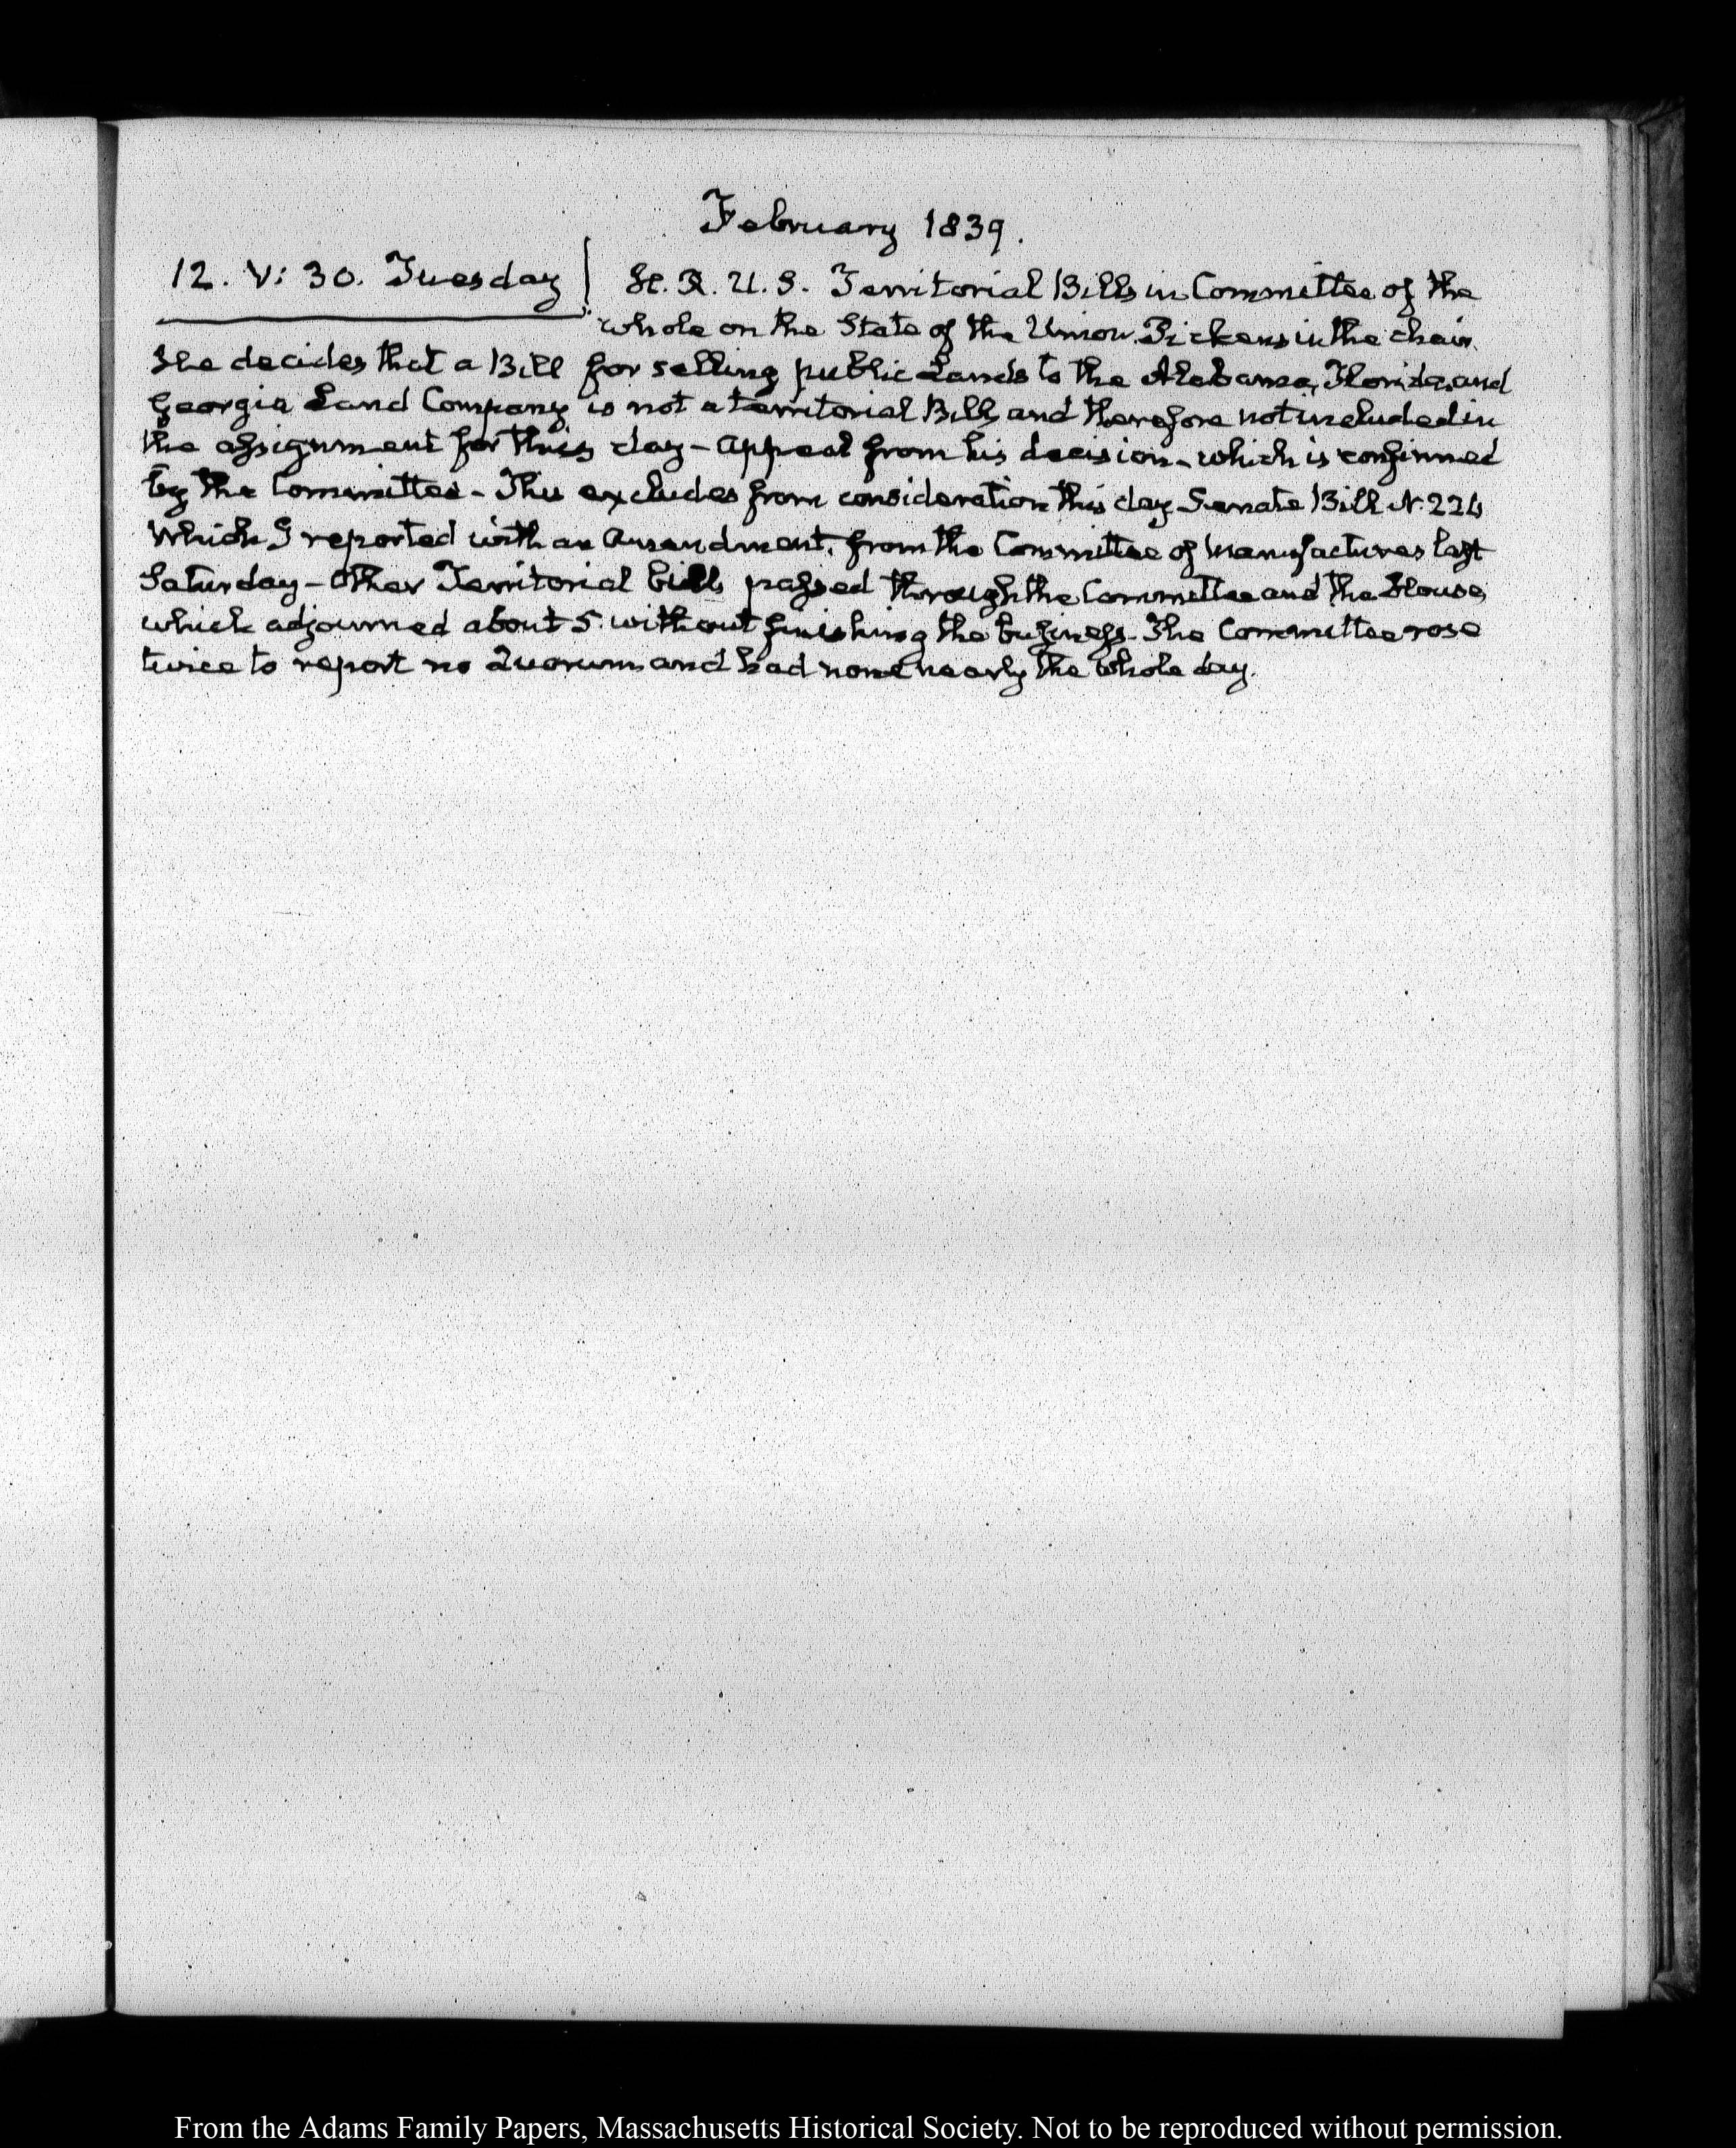 February 1839.
12. V: 30. Tuesday
H. R. U. S. Territorial Bills in Committee of the
whole on the State of the Union. Pickens in the chair.
He decides that a Bill for selling public Lands to the Alabama, Florida, and
Georgia Land Company is not a territorial Bill, and therefore not included in
the assignment for this day - appeal from his decision - which is confirmed
by the Committee - This excludes from consideration this day Senate Bill N. 224
which I reported with an Amendment, from the Committee of Manufactures last
Saturday - Other Territorial bills passed through the Committee and the House,
which adjourned about 5 without finishing the business. The Committee rose
twice to report no Quorum and had none nearly the whole day.
From the Adams Family Papers, Massachusetts Historical Society. Not to be reproduced without permission.